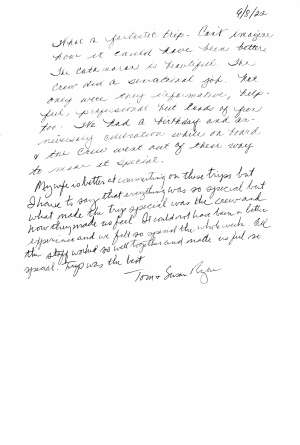 9/5/22
What a fantastic trip. Can't imagine
how it could have been better.
The catamaran is beautiful. The
crew did a sensational job. Not
only were they informative, help-
ful, professional but loads of fun
too. We had a birthday and an-
niversary celebration while on board
& the crew went out of their way
to make it special.
My wife is better at commenting on these trips but
I have to say that everything was so special but
what made the trip special was the crew and
how they made us feel. It could not have been a better
experience and we felt so special the whole week. All
the staff worked so well together and made us feel so
special. Trip was the best
Tom & Susan